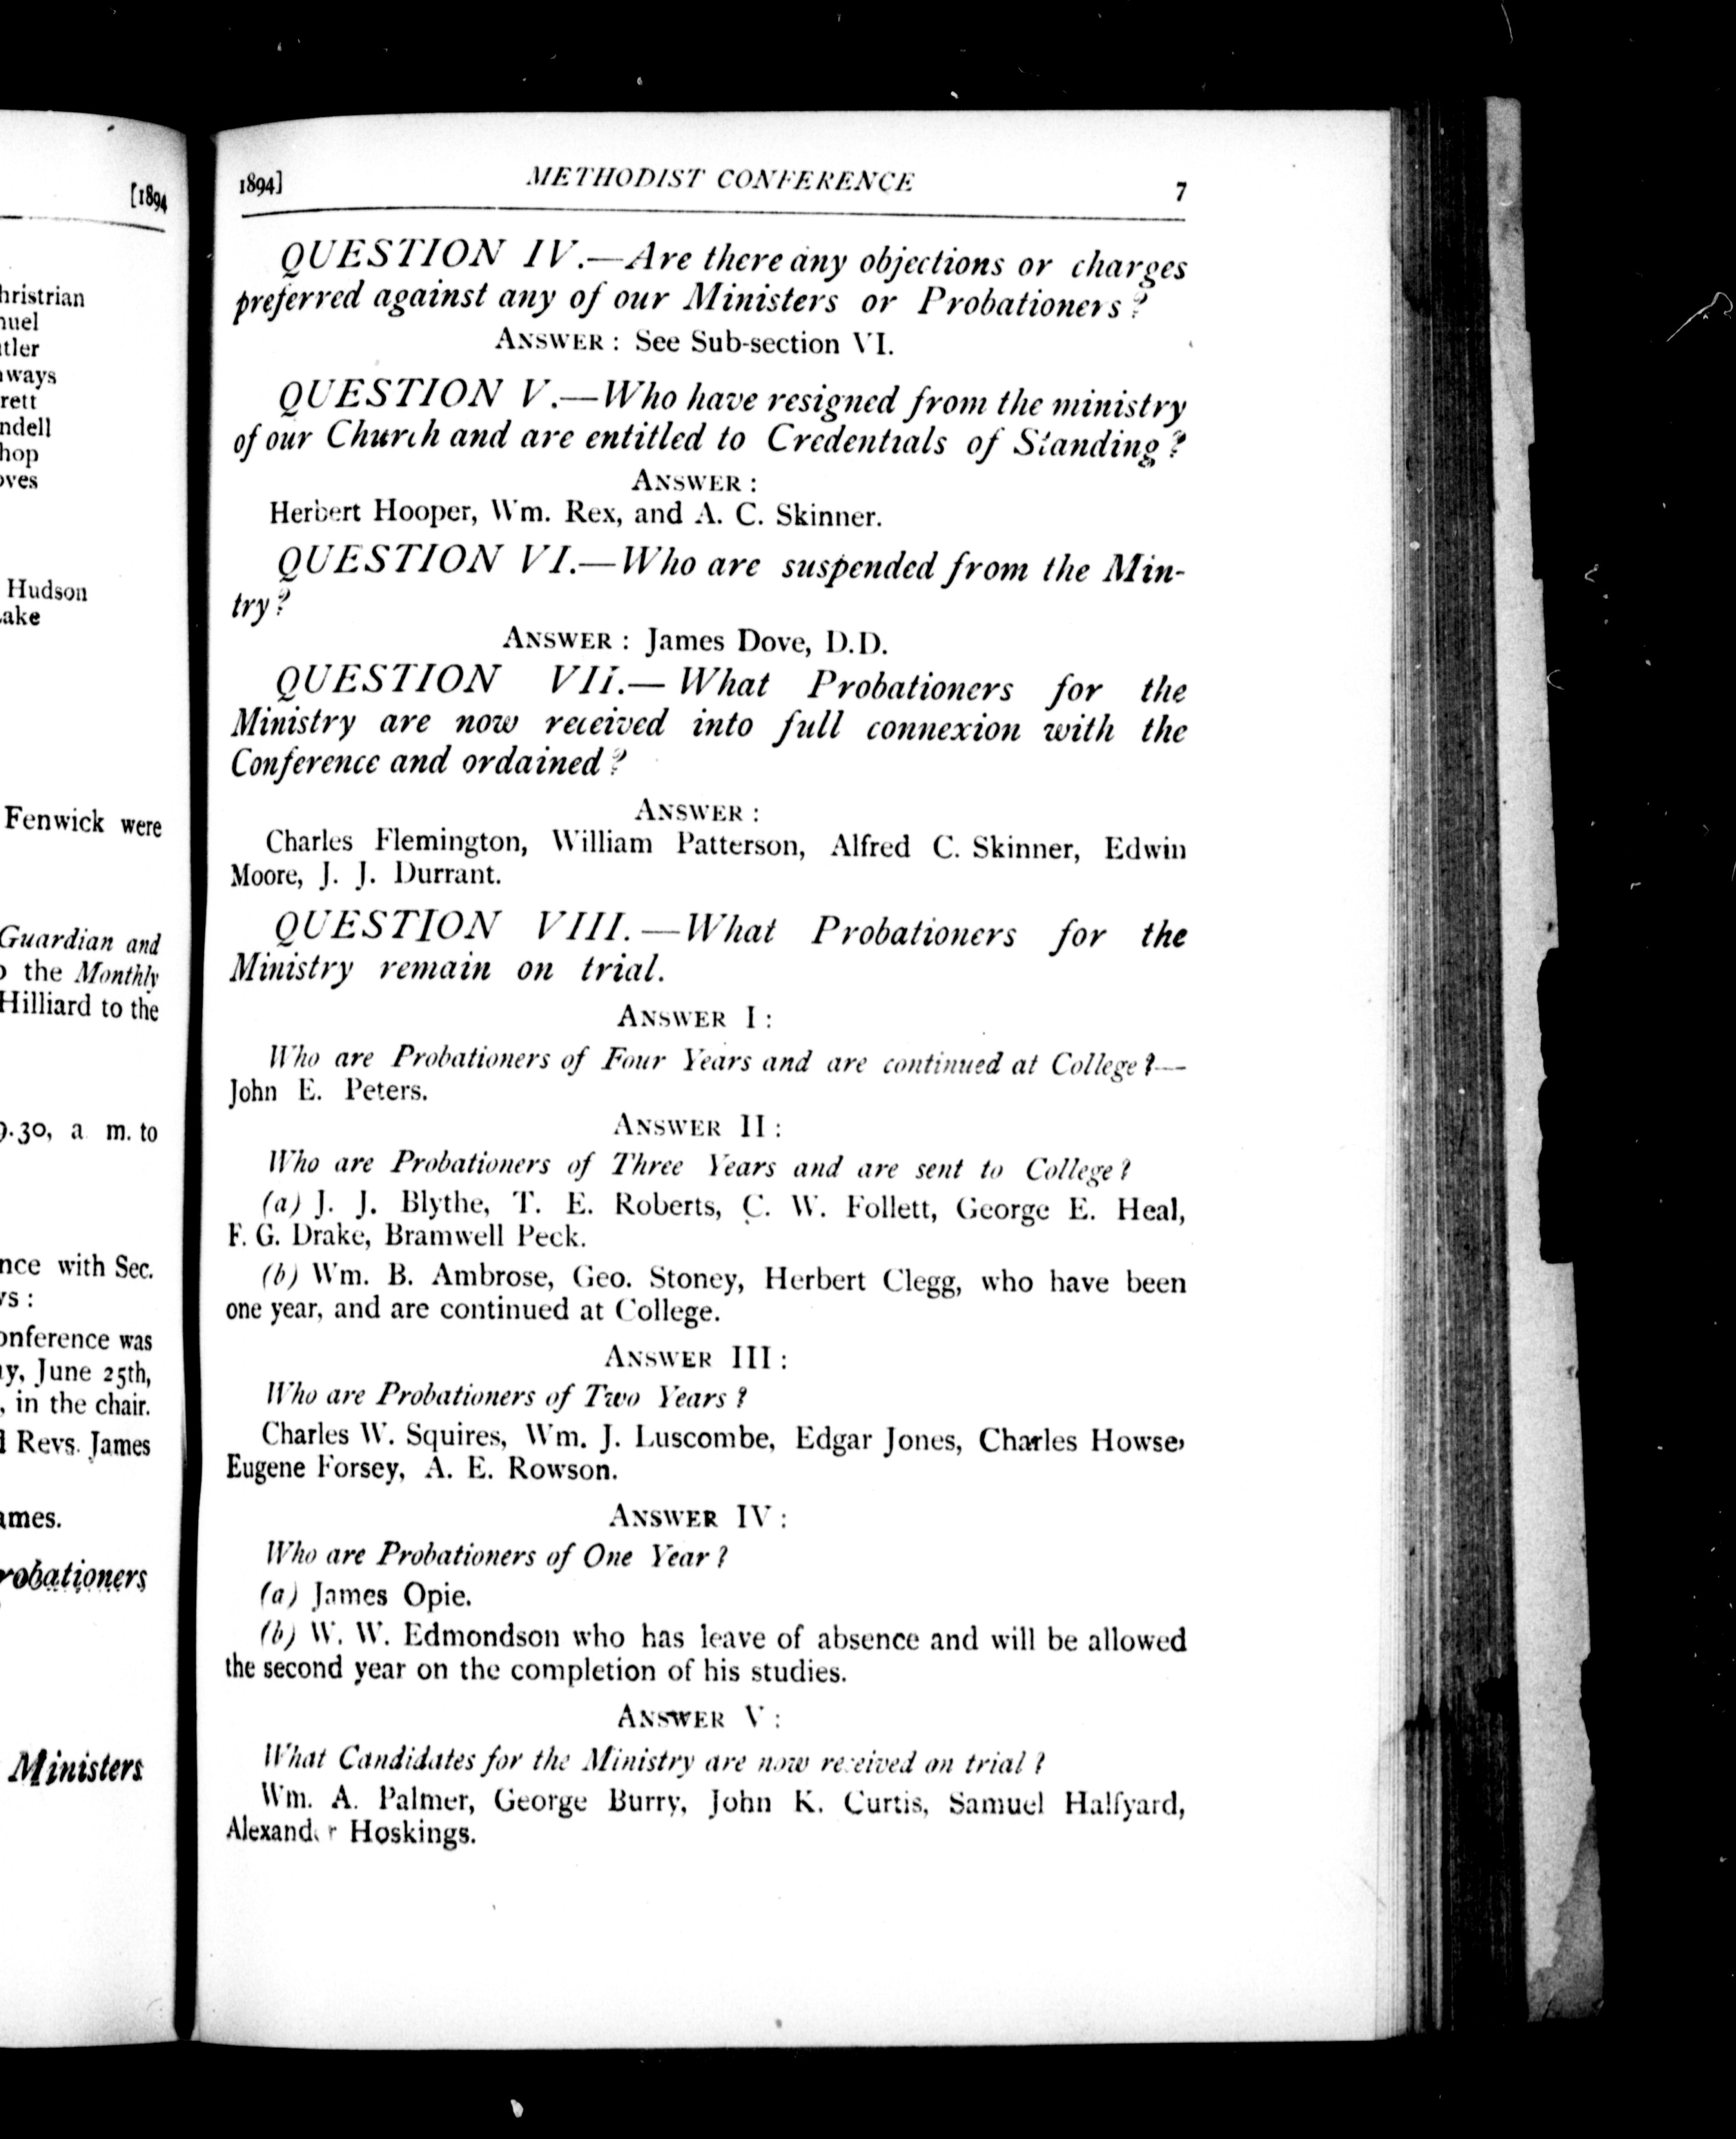 [1894
hristrian
nuel
tler
ways
rett
ndell
hop
oves
Hudson
ake
Fenwick were
Guardian and
the Monthly
Hilliard to the
9.30, a m. to
nce with Sec.
vs :
onference was
ay, June 25th,
, in the chair.
Revs. James
ames.
robationers
Ministers
1894] METHODIST CONFERENCE 7
QUESTION IV.—Are there any objections or charges
preferred against any of our Ministers or Probationers?
ANSWER : See Sub-section VI.
QUESTION V.—Who have resigned from the ministry
of our Church and are entitled to Credentials of Standing?
ANSWER :
Herbert Hooper, Wm. Rex, and A. C. Skinner.
QUESTION VI.—Who are suspended from the Min-
try?
ANSWER : James Dove, D.D.
QUESTION VII.— What Probationers for the
Ministry are now received into full connexion with the
Conference and ordained?
ANSWER :
Charles Flemington, William Patterson, Alfred C. Skinner, Edwin
Moore, J. J. Durrant.
QUESTION VIII.—What Probationers for the
Ministry remain on trial.
ANSWER I :
Who are Probationers of Four Years and are continued at College?—
John E. Peters.
ANSWER II :
Who are Probationers of Three Years and are sent to College?
(a) J. J. Blythe, T. E. Roberts, C. W. Follett, George E. Heal,
F. G. Drake, Bramwell Peck.
(b) Wm. B. Ambrose, Geo. Stoney, Herbert Clegg, who have been
one year, and are continued at College.
ANSWER III :
Who are Probationers of Two Years?
Charles W. Squires, Wm. J. Luscombe, Edgar Jones, Charles Howse,
Eugene Forsey, A. E. Rowson.
ANSWER IV :
Who are Probationers of One Year?
(a) James Opie.
(b) W. W. Edmondson who has leave of absence and will be allowed
the second year on the completion of his studies.
ANSWER V :
What Candidates for the Ministry are now received on trial?
Wm. A. Palmer, George Burry, John K. Curtis, Samuel Halfyard,
Alexander Hoskings.